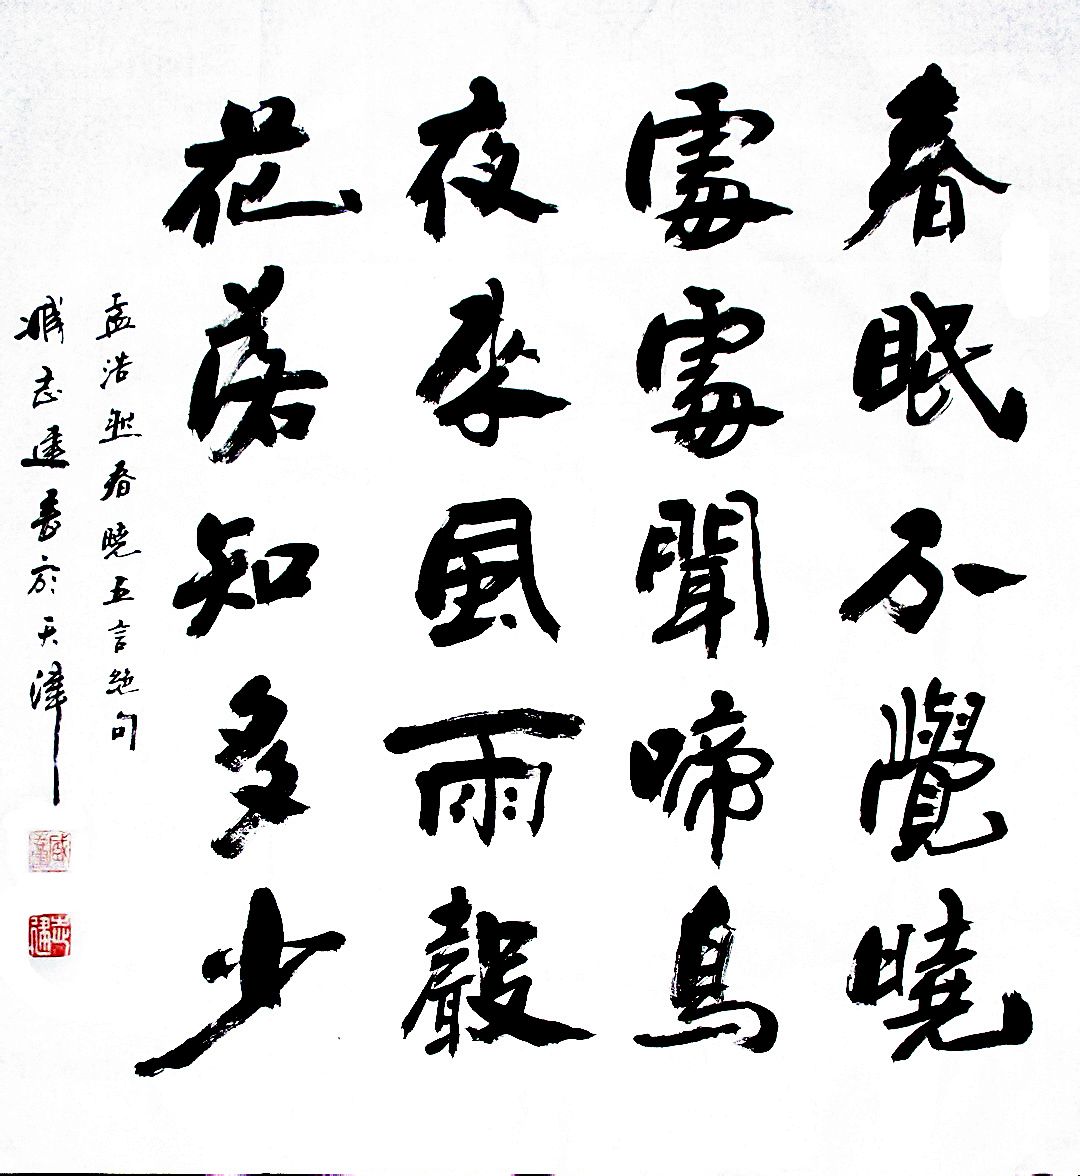 春眠不覺曉
處處聞啼鳥
夜來風雨聲
花落知多少
孟浩然春曉五言絕句
志建書於天津
志建